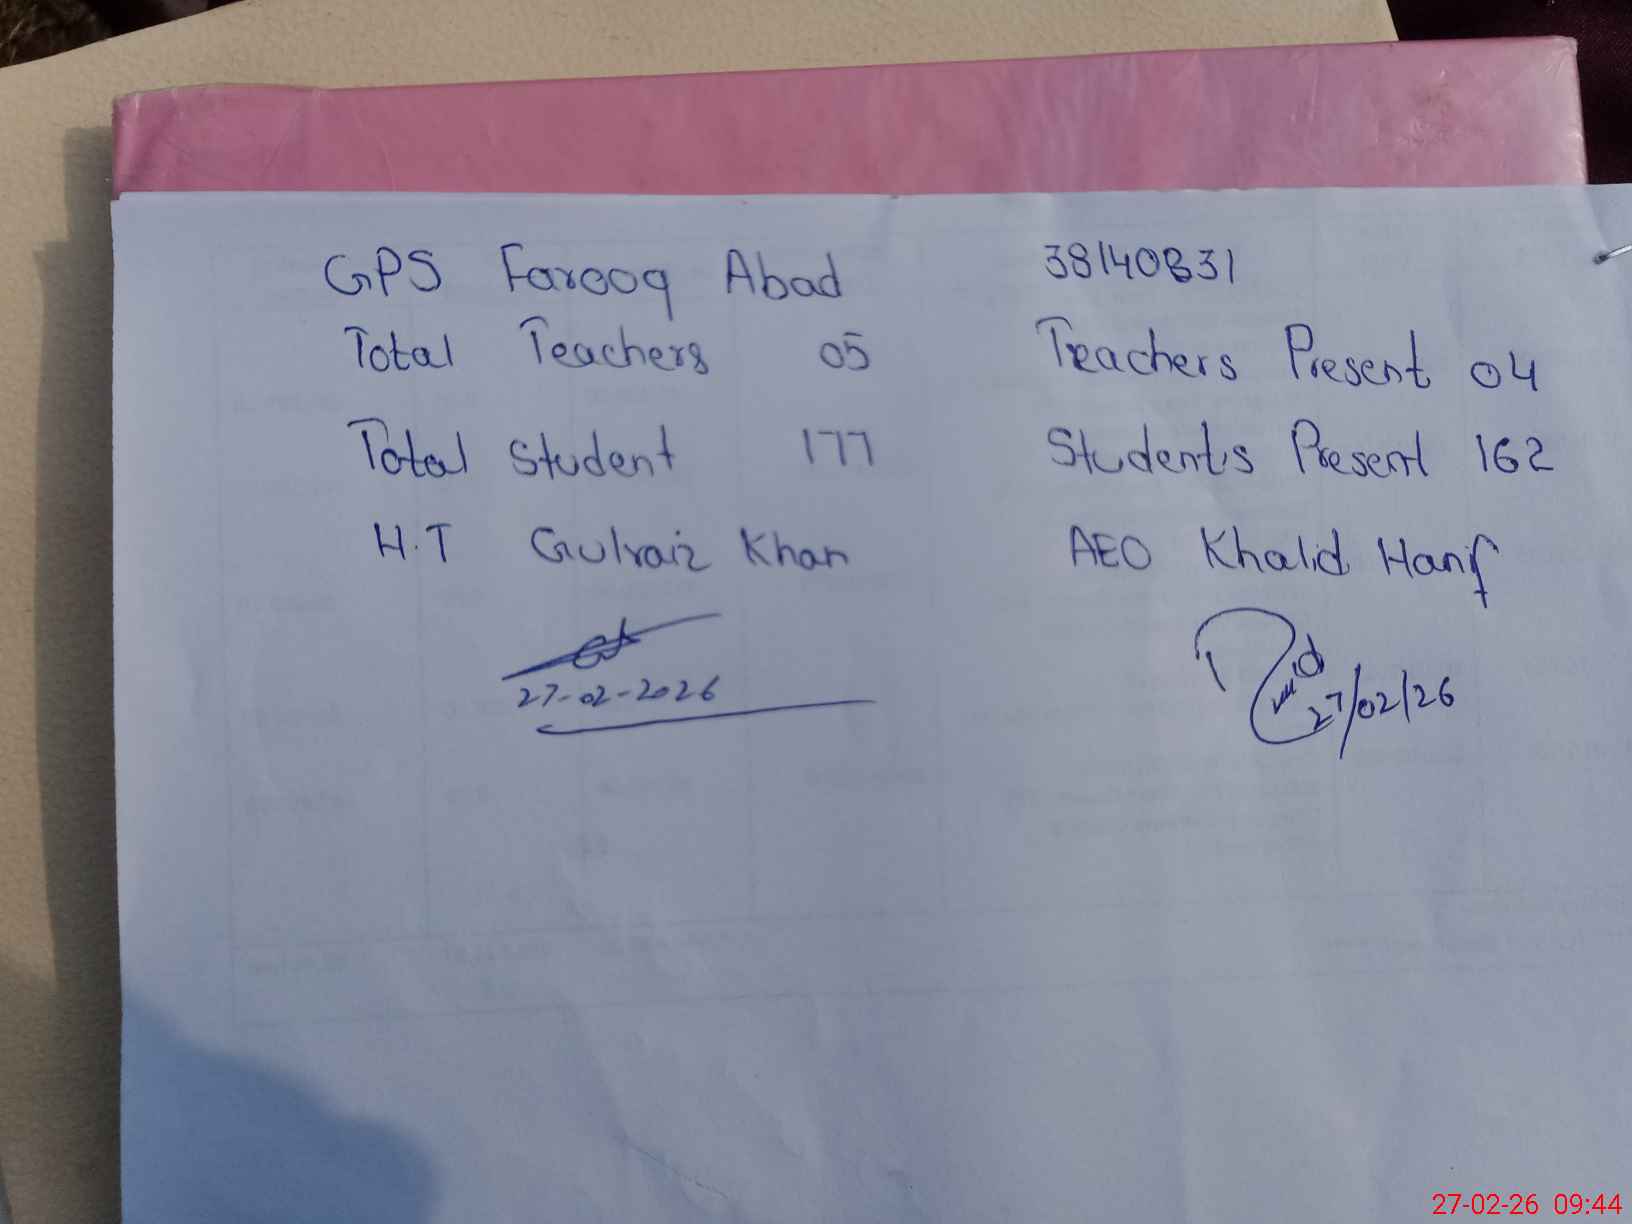 GPS Farooq Abad 38140831
Total Teachers 05 Teachers Present 04
Total Student 177 Students Present 162
H.T Gulraiz Khan AEO Khalid Hanif
27-02-2026 27/02/26
27-02-26 09:44